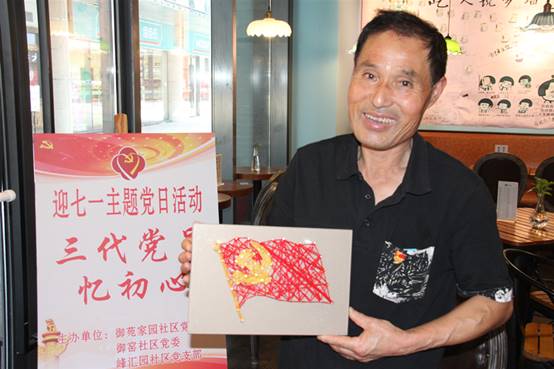 迎七一主题党日活动
三代党
忆初心
主办单位：御苑家园社区党
御窑社区党委
峰汇园社区党支部